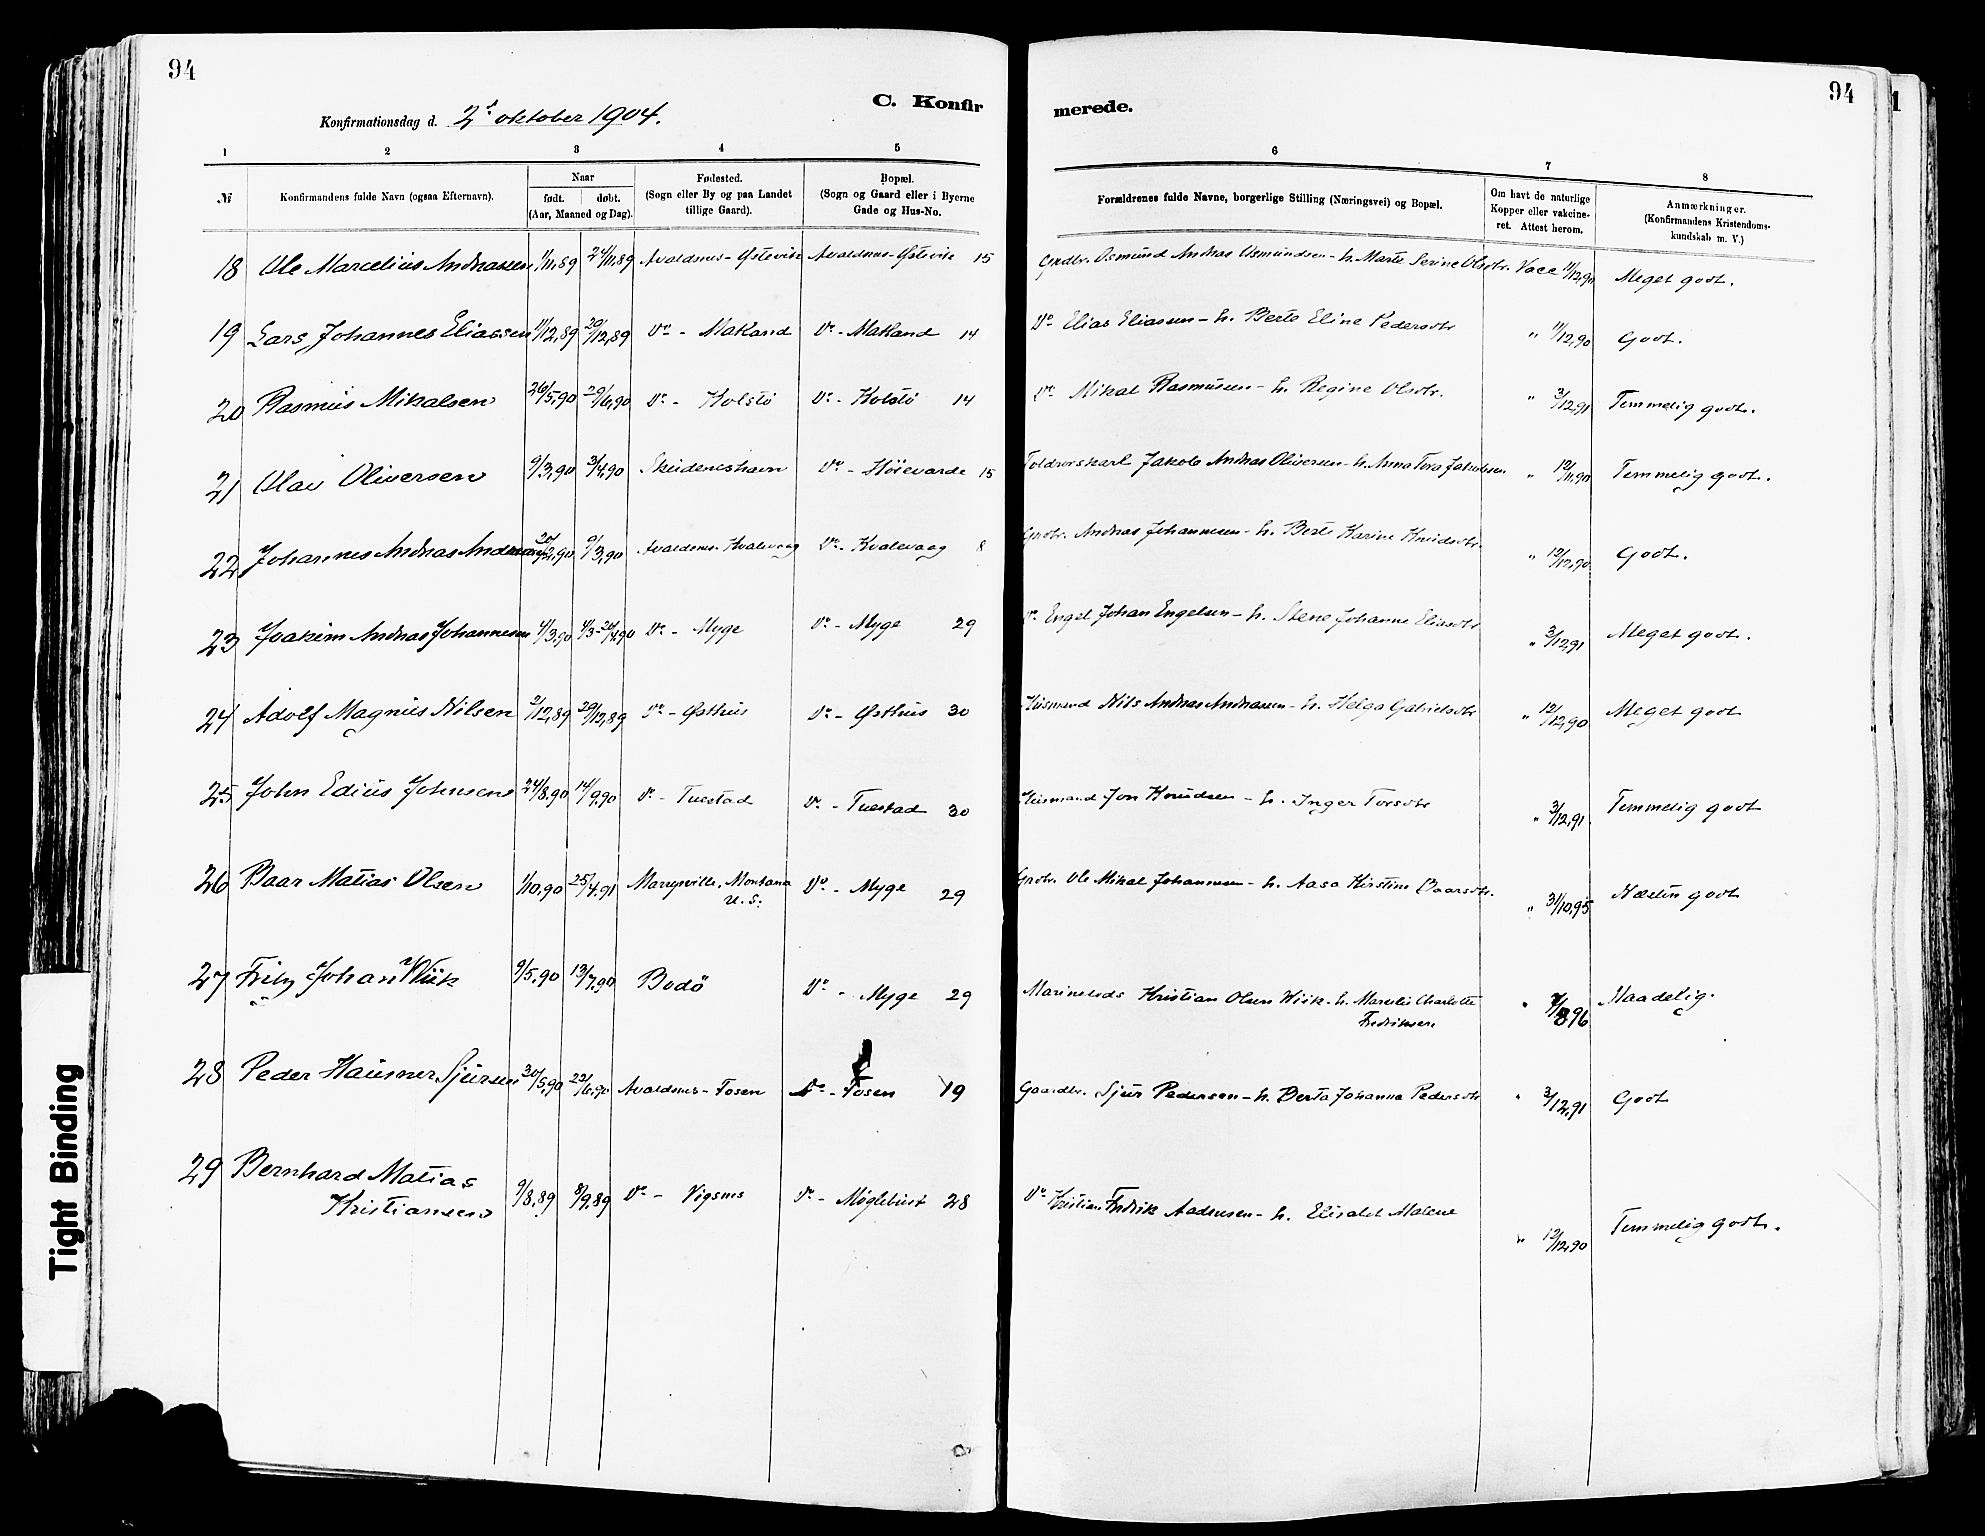 94
94
C. Konfir
merede.
Konfirmationsdag d. 2d oktober 1904.
1 2 3 4 5 6 7 8
№
Konfirmandens fulde Navn (ogsaa Efternavn).
Naar
født. døbt.
(Aar, Maaned og Dag).
Fødested.
(Sogn eller By og paa Landet
tillige Gaard).
Bopæl.
(Sogn og Gaard eller i Byerne
Gade og Hus-No.
Forældrenes fulde Navne, borgerlige Stilling (Næringsvei) og Bopæl.
Om havt de naturlige
Kopper eller vakcine-
ret. Attest herom.
Anmærkninger.
(Konfirmandens Kristendoms-
kundskab m. V.)
18 Ole Marcelius Andreassen 1/11,89 24/11,89 Avaldsnes - Østevik Avaldsnes - Østevik 15 Grdbr. Osmund Andreas Osmundsen - h. Marte Serine Olsdtr. Vacc 11/12,90 Meget godt.
19 Lars Johannes Eliassen 11/12,89 29/12,89 Do - Møkland Do - Møkland 14 Do Elias Eliassen - h. Berte Eline Pedersdtr " 11/12,90 Godt.
20 Rasmus Mikalsen 26/5,90 29/6,90 Do - Kolstø Do - Kolstø 14 Do Mikal Rasmussen - h. Regine Olsdtr. " 3/12,91 Temmelig godt.
21 Olai Oliversen 9/3,90 3/4,90 Skudeneshavn Do - Høievarde 15 Toldrorskarl Jakob Andreas Oliversen - h. Anna Tora Jakobsen " 12/11,90 Temmelig godt.
22 Johannes Andreas Andreassen 20/2,90 9/3,90 Avaldsnes - Kvalevaag Do - Kvalevaag 8 Grdbr. Andreas Johannesen - h. Berte Karine Knudsdtr. " 12/12,90 Godt.
23 Joakim Andreas Johannesen 4/3,90 4/3-20/4,90 Do - Myge Do - Myge 29 Do Engel Johan Engelsen - h. Stene Johanne Eliasdtr " 3/12,91 Meget godt.
24 Adolf Magnus Nilsen 2/12,89 29/12,89 Do - Østhus Do - Østhus 30 Husmand Nils Andreas Andreassen - h. Helga Gabrielsdtr " 12/12,90 Meget godt
25 John Edius Johnsen 24/8,90 14/9,90 Do - Tuestad Do - Tuestad 30 Husmand Jon Knudsen - h. Inger Torsdtr " 3/12,91. Temmelig godt
26 Baar Matias Olsen 1/10,90 25/4,91 Marysville, Montana
U. S.
Do - Myge 29 Grdbr. Ole Mikal Johannesen - h. Aasa Kirstine Baarsdtr. " 31/10,95 Næsten godt
27 Fritz Johan Wiik 9/5,90 13/7,90 Bodö Do - Myge 29 Marinelods Kristian Olsen Wiik - h. Marelie Charlotte
Fredriksen
" 7/8 96 Maadelig.
28 Peder Hausner Sjursen 30/5,90 22/6,90 Avaldsnes - Fosen Do - Fosen 19 Gaardbr. Sjur Pedersen - h. Berta Johanna Pedersdtr " 3/12,91 Godt
29 Bernhard Matias
Kristiansen
9/8,89 8/9,89 Do - Vigsnes Do - Møglebust 28 Do Kristian Fredrik Aadnesen - h. Elisabet Malene " 12/12,90 Temmelig godt.
Tight Binding